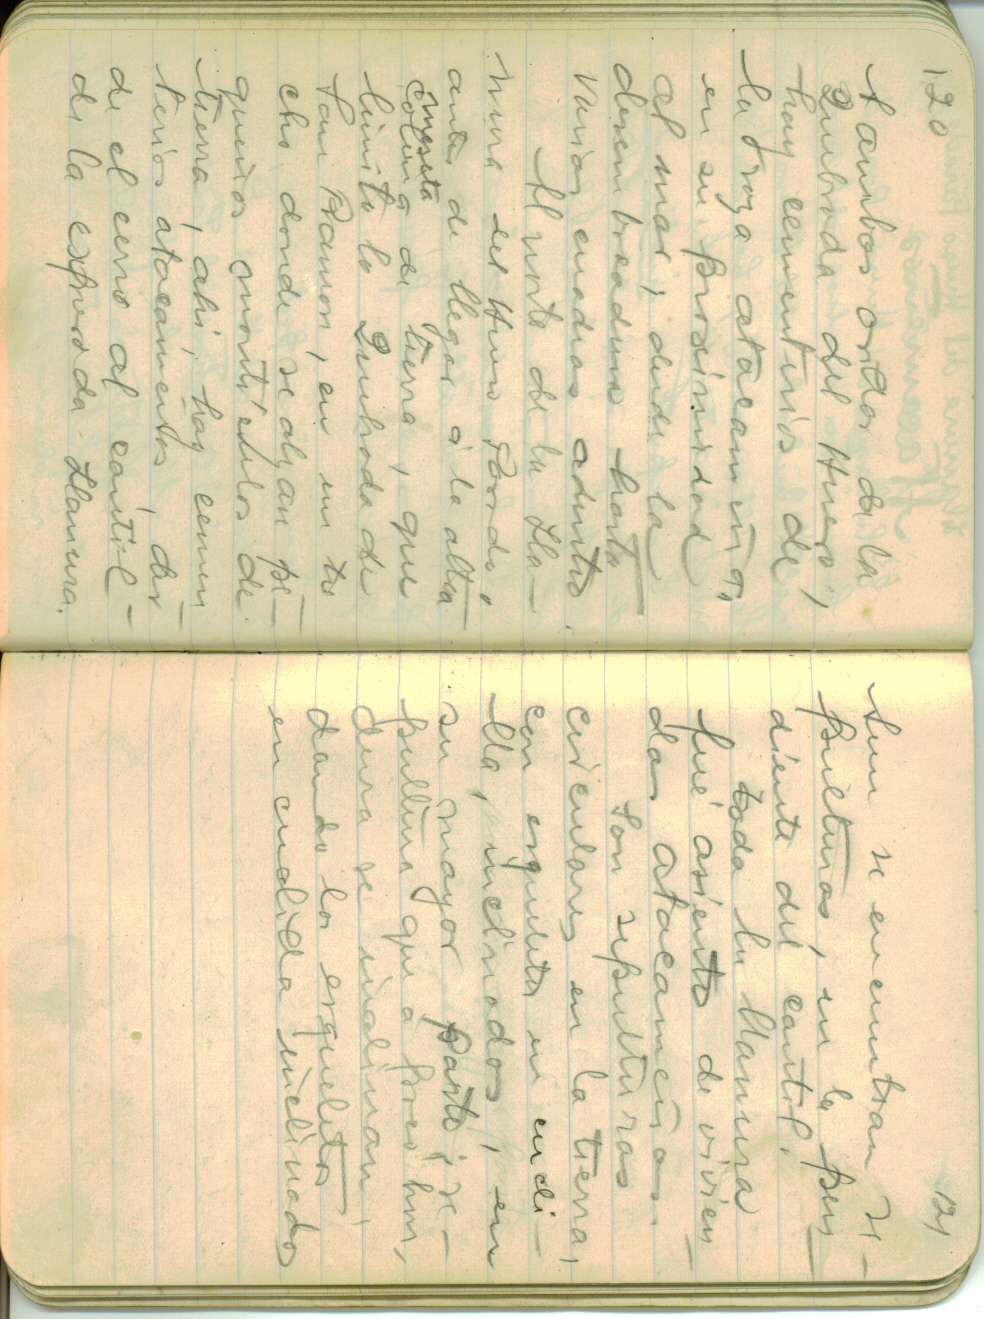 120
A ambos orillas de la
Quebrada del Hueso,
hay cementerios de
la raza atacameña,
en su proximidad
al mar, desde la
desembocadura hasta
varias cuadras adentro.
Al norte de la Lla-
nura del Hueso Parado,
antes de llegar a la alta
meseta
colina de tierra, que
limita la Quebrada de
San Ramon, en un tre
cho donde se alzan pe-
queños montículos de
tierra, ahi, hay cemen
terios atacameños, des-
de el cerro al cantil-
de la expresada Llanura.
121
Aun se encuentran se-
pulturas, en la pen
diente del cantil.
Toda la llanura
fué asiento de vivien
das atacameñas.
Son sepulturas
circulares en la tierra,
con esqueletos en cucli-
lla, inclinados, en
su mayor parte; se-
pultura que a poco hun,
dura se inclinan,
dando los esqueletos
en cuclilla inclinados